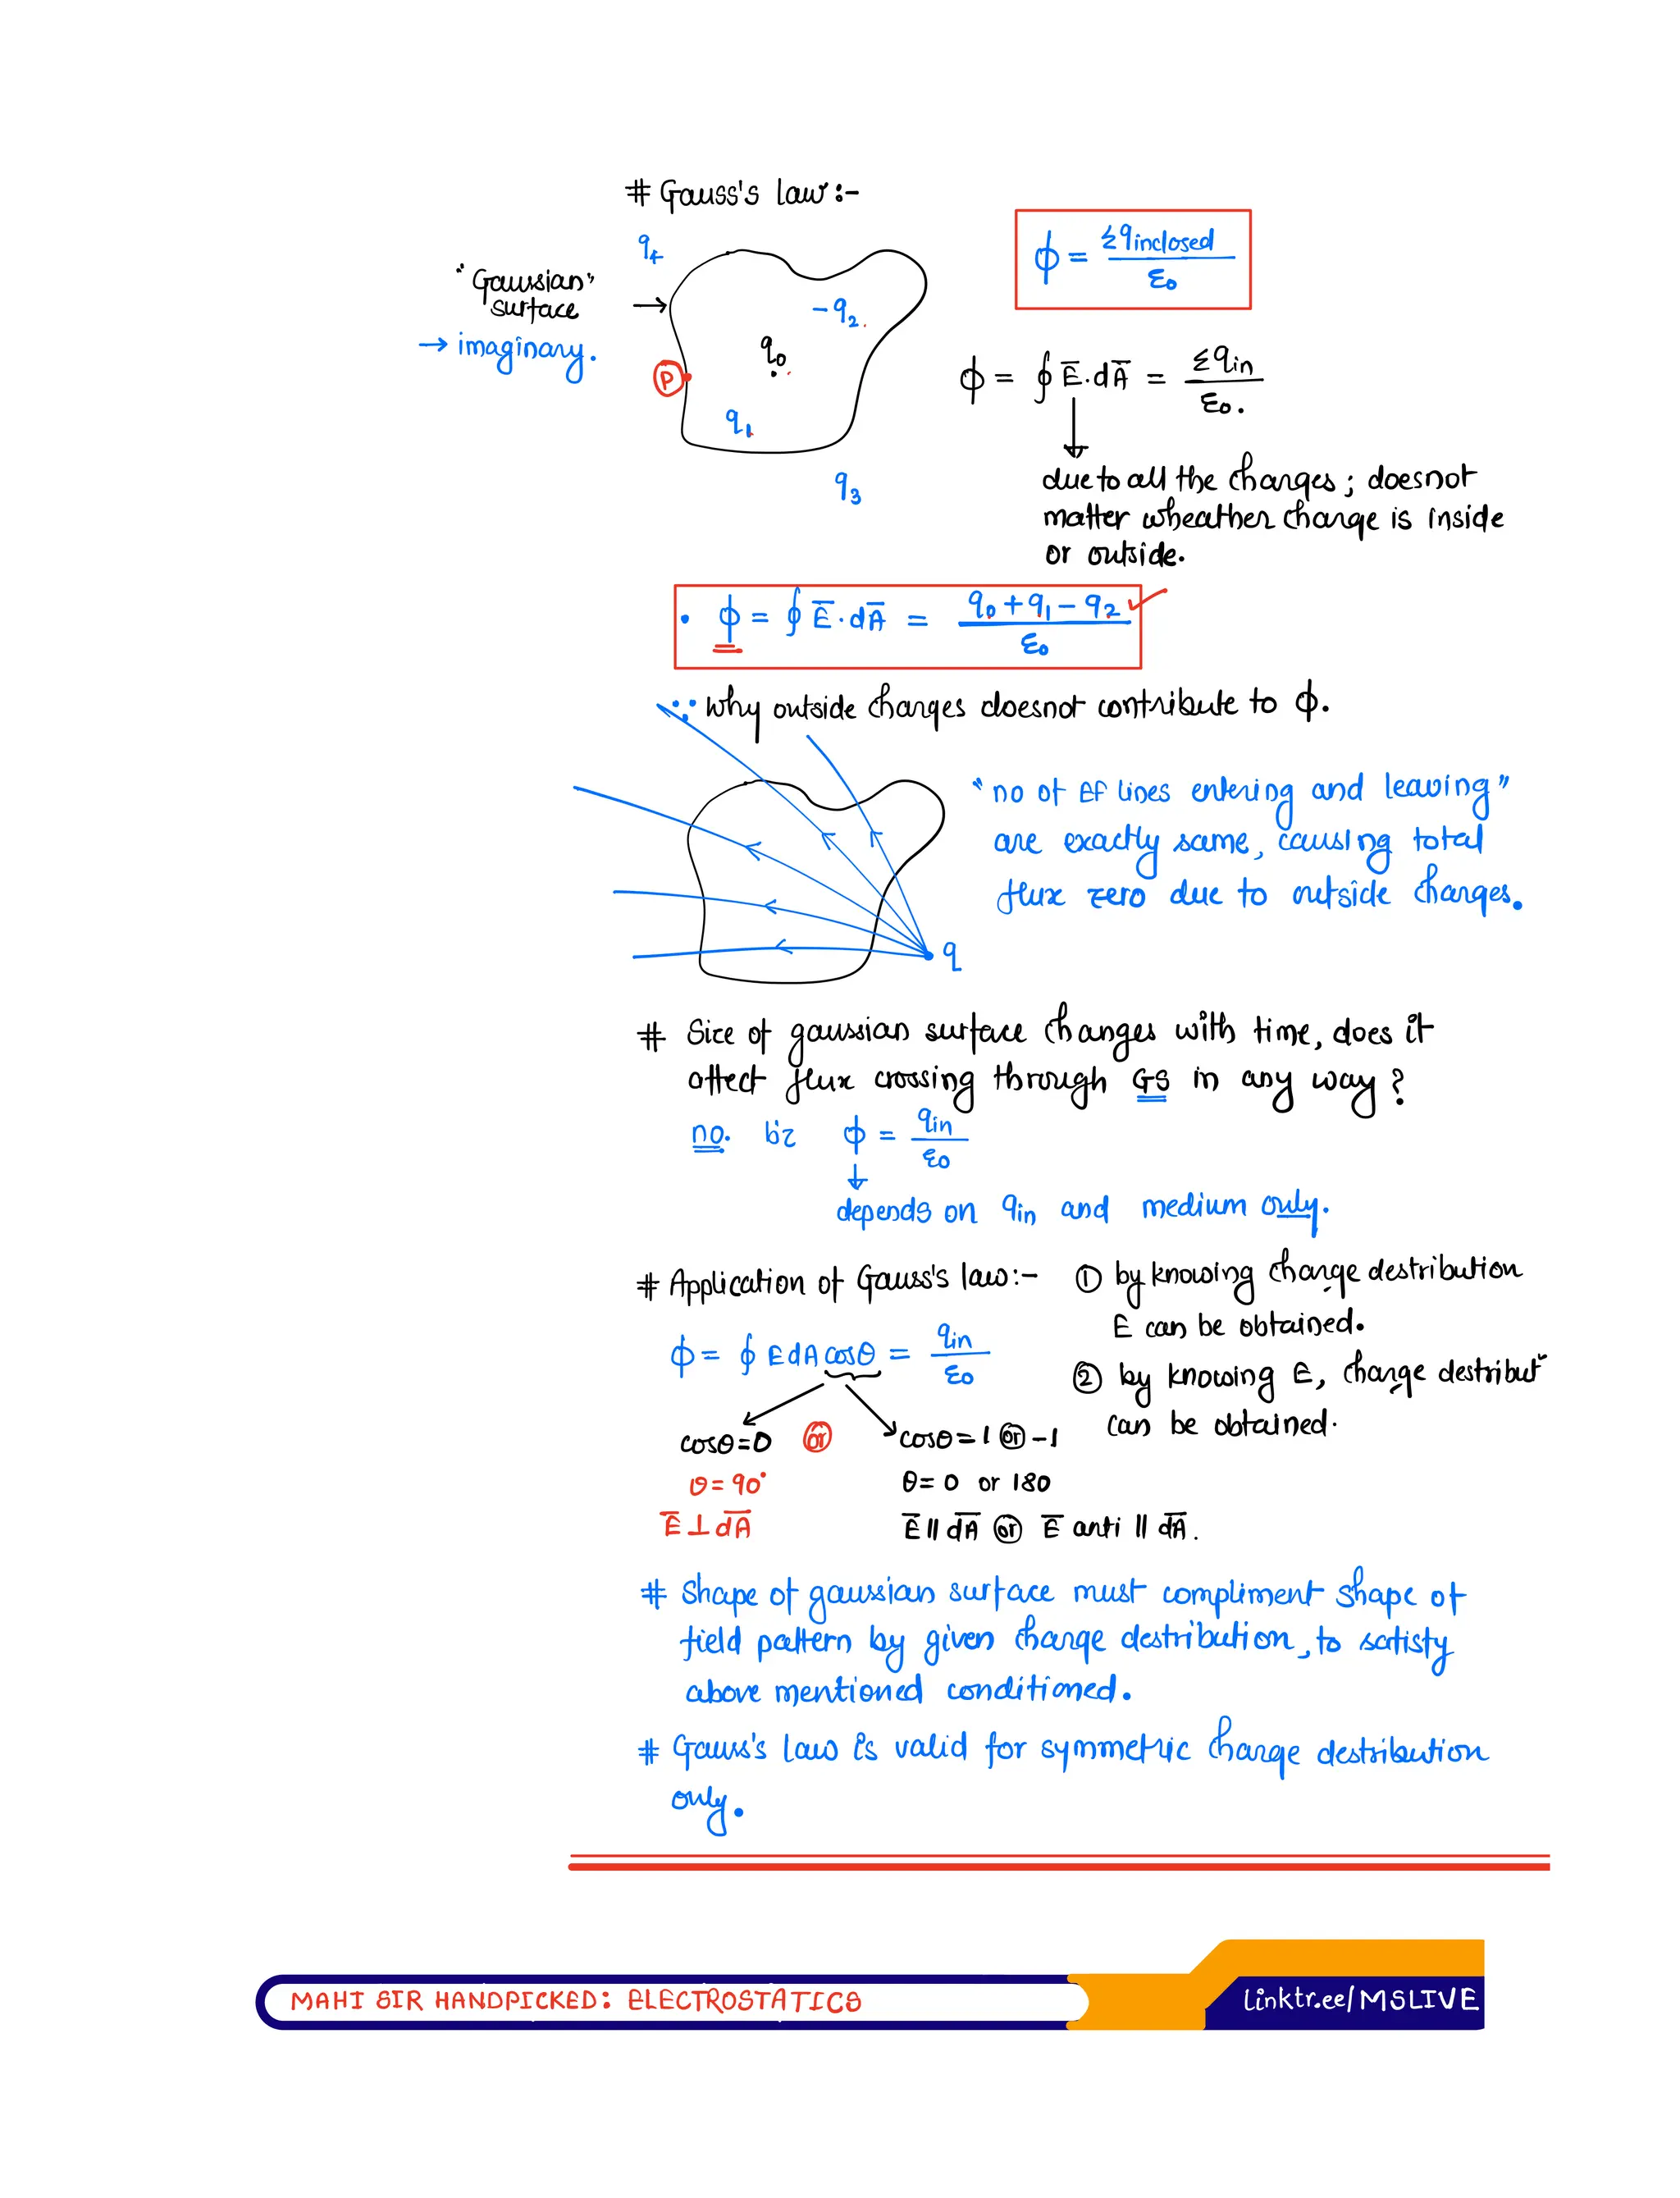 # Gauss's law:-
q4
"Gaussian"
surface
→ imaginary.
-q2
q0
P
q1
q3
ϕ = Σqinclosed / ε0
ϕ = ∮ E̅.dA̅ = Σqin / ε0.
due to all the charges; doesnot
matter wheather charge is inside
or outside.
• ϕ = ∮ E̅.dA̅ = q0 + q1 - q2 / ε0
∵ Why outside charges doesnot contribute to ϕ.
"no of EF lines entering and leaving"
are exactly same, causing total
flux zero due to outside charges.
q
# Size of gaussian surface changes with time, does it
affect flux crossing through GS in any way?
no. b'z ϕ = qin / ε0
depends on qin and medium only.
# Application of Gauss's law:- ① by knowing charge destribution
E can be obtained.
ϕ = ∮ E dA cosθ = qin / ε0
② by knowing E, charge destribut
can be obtained.
cosθ=0 or cosθ=1 or -1
θ=90° θ=0 or 180
E̅ ⊥ dA̅ E̅ || dA̅ or E̅ anti || dA̅.
# Shape of gaussian surface must compliment shape of
field pattern by given charge destribution, to satisfy
above mentioned conditioned.
# Gauss's law is valid for symmetric charge destribution
only.
MAHI SIR HANDPICKED: ELECTROSTATICS
Linktr.ee/MSLIVE